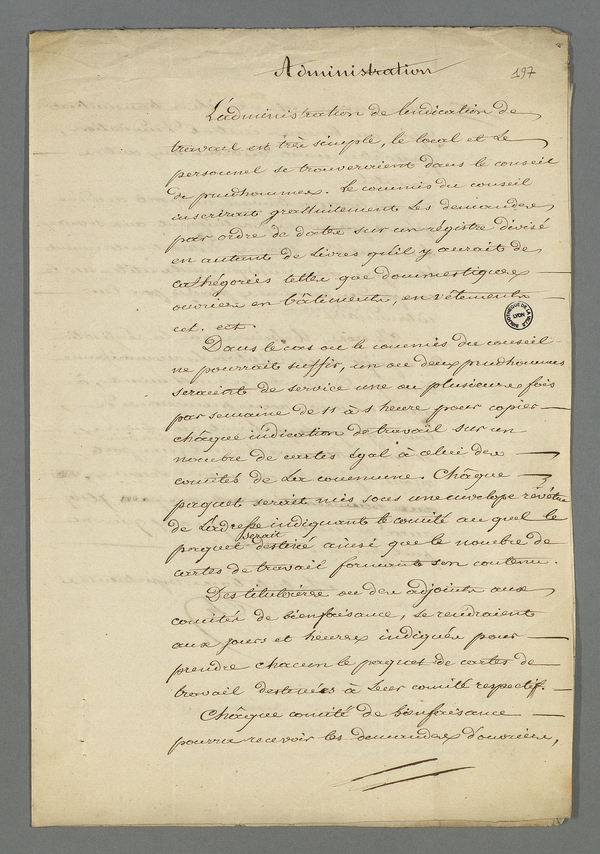 Administration
197
L'administration de l'indication de
travail est très simple, le local et le
personnel se trouveraient dans le conseil
de prudhommes. Le commis du conseil
inscrirait grattuitement les demandes
par ordre de datte sur un régistre divisé
en autant de livres qu'il y aurait de
cathégories telles que dommestiques
ouvriers en bâtiments, en vêtements
cet. ect.
BIBLIOTHEQUE DE LA VILLE LYON
Dans le cas ou le commis du conseil
ne pourrait suffir, un ou deux prudhommes
seraient de service une ou plusieurs fois
par semaine de 11 à 1 heure pour copier
châque indication de travail sur un
nombre de cartes égal à celui des
comités de la commune. Châque
paquet serait mis sous une envelope révêtue
de l'adresse indiquant le comité au quel le
paquet serait destiné ainsi que le nombre de
cartes de travail formant son contenu.
Des titulaires ou des adjoints aux
comités de bienfaisance, se rendraient
aux jours et heures indiqués pour
prendre chacun le paquet de cartes de
travail destinées à leur comité respectif.
Châque comité de bienfaisance
pourra recevoir les demandes d'ouvriers,